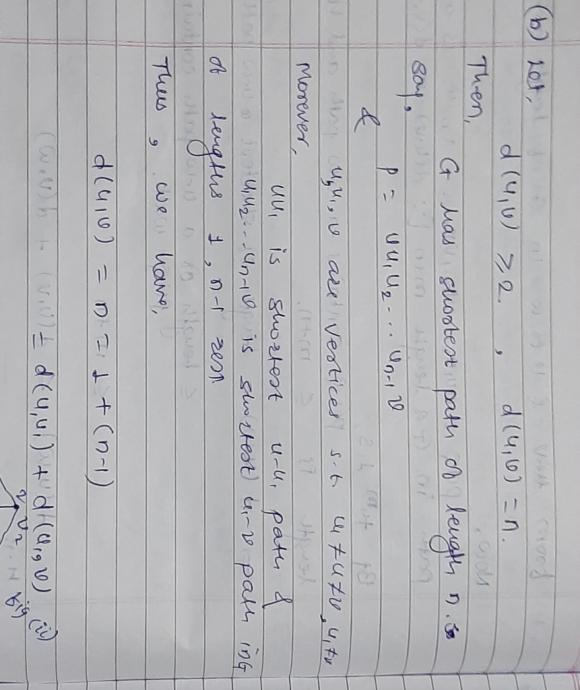 (b) Let,
d(u,v) ≥ 2 , d(u,v) = n.
Then,
G has shortest path of length n.
say,
P = uu₁u₂...uₙ₋₁v
&
u,u₁,v are vertices s.t. u₁≠u≠v, u₁≠v
Morever,
uu₁ is shortest u-u₁ path &
u₁u₂...uₙ₋₁v is shortest u₁-v path in G
of lengths 1, n-1 resp
Thus, we have,
d(u,v) = n = 1 + (n-1)
= d(u,u₁) + d(u₁,v) (ii)
v₂
fig